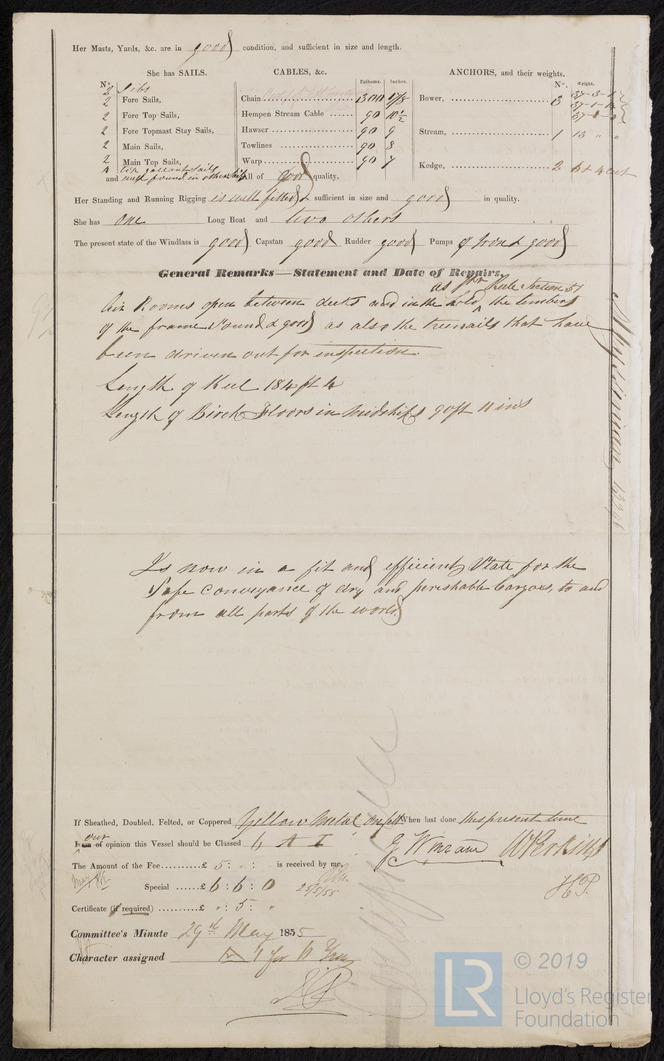 Her Masts, Yards, &c. are in good condition, and sufficient in size and length.
She has SAILS.
CABLES, &c.
ANCHORS, and their weights.
N°.
Fathoms.
Inches.
N°.
Weight.
2 Jibs
2 Fore Sails,
2 Fore Top Sails,
2 Fore Topmast Stay Sails,
2 Main Sails,
2 Main Top Sails,
and well found in others
Chain 300 1 5/8
Hempen Stream Cable 90 10½
Hawser 90 9
Towlines 90 8
Warp 90 7
All of good quality.
Bower, 3
Stream, 1 13 " "
Kedge, 2 6 & 4 cwt
Her Standing and Running Rigging is well fitted & sufficient in size and good in quality.
She has one Long Boat and two others
The present state of the Windlass is good Capstan good Rudder good Pumps of Iron & good
General Remarks—Statement and Date of Repairs.
as per Rule Section 57
Air Rooms open between decks and in the hold, the timbers
of the frame sound & good as also the treenails that have
been driven out for inspection
Length of Keel 184 ft 4
Length of Birch Floors in Midships 90 ft 11 ins
Is now in a fit and efficient State for the
Safe conveyance of dry and perishable Cargoes, to and
from all parts of the world
If Sheathed, Doubled, Felted, or Coppered Yellow Metal on felt When last done this present time
our
I am of opinion this Vessel should be Classed 6 A 1
The Amount of the Fee £ 5 : " : " is received by me,
Special £ 6 : 6 : 0 25/5/55
Certificate (if required) £ " : 5 : "
H.P.
Committee's Minute 29th May 1855
Character assigned A 1 for 6 Years
LR
© 2019
Lloyd's Register
Foundation